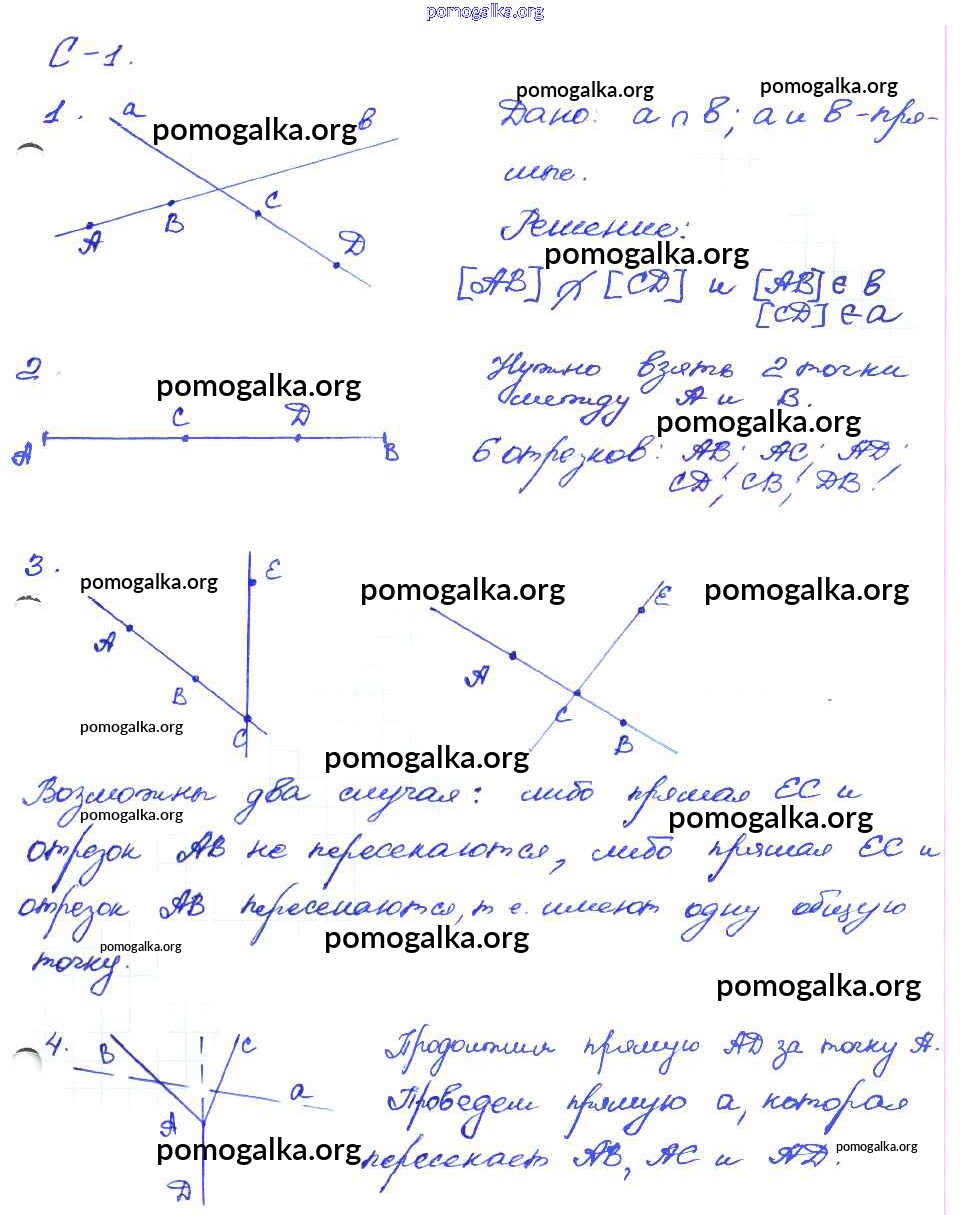 pomogalka.org
С-1.
1. a
b
pomogalka.org
A B C D
pomogalka.org pomogalka.org
Дано: a ∩ b; a и b - пря-
мые.
Решение:
pomogalka.org
[AB] ∩̸ [CD] и [AB] ∈ b
[CD] ∈ a
2.
pomogalka.org
A C D B
Нужно взять 2 точки
между A и B.
pomogalka.org
6 отрезков: AB; AC; AD;
CD; CB; DB;
3.
pomogalka.org
E
A
B
C
pomogalka.org
pomogalka.org pomogalka.org
E
A
C
B
pomogalka.org
Возможны два случая: либо прямая EC и
pomogalka.org pomogalka.org
отрезок AB не пересекаются, либо прямая EC и
отрезок AB пересекаются, т е. имеют одну общую
pomogalka.org pomogalka.org
точку.
pomogalka.org
4. B C
a
A
D
pomogalka.org
Продолжим прямую AD за точку A.
Проведем прямую a, которая
пересекает AB, AC и AD.
pomogalka.org